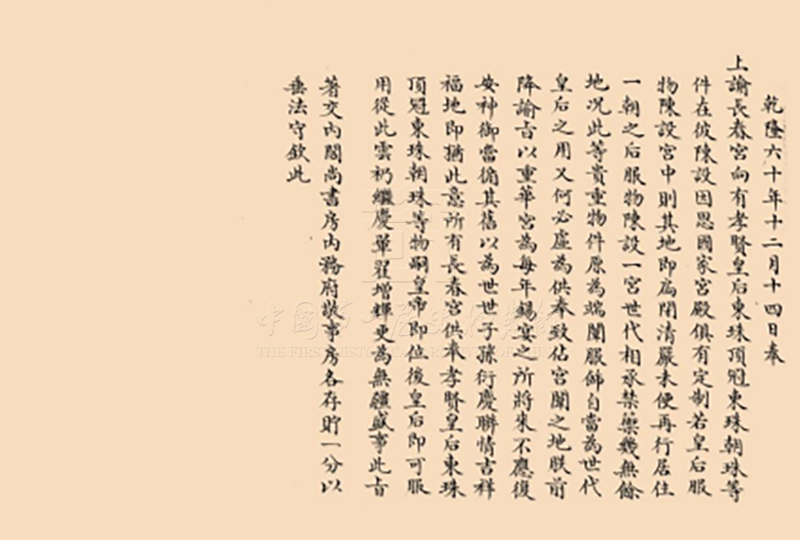 乾隆六十年十二月十四日奉
上諭長春宮向有孝賢皇后東珠頂冠東珠朝珠等
件在彼陳設因思國家宮殿俱有定制若皇后服
物陳設宮中則其地即為閉清嚴未便再行居住
一朝之后服物陳設一宮世代相承禁籞幾無餘
地況此等貴重物件原為端闈服飾自當為世代
皇后之用又何必虛為供奉致佔宮闈之地朕前
降諭旨以重華宮為每年錫宴之所將來不應復
安神御當循其舊以為世世子孫衍慶聯情吉祥
福地即猶此意所有長春宮供奉孝賢皇后東珠
頂冠東珠朝珠等物嗣皇帝即位後皇后即可服
用從此雲礽繼慶翬翟增輝更為無疆盛事此旨
著交內閣尚書房內務府敬事房各存貯一分以
垂法守欽此
中國第一歷史檔案館
THE FIRST HISTORICAL ARCHIVES OF CHINA